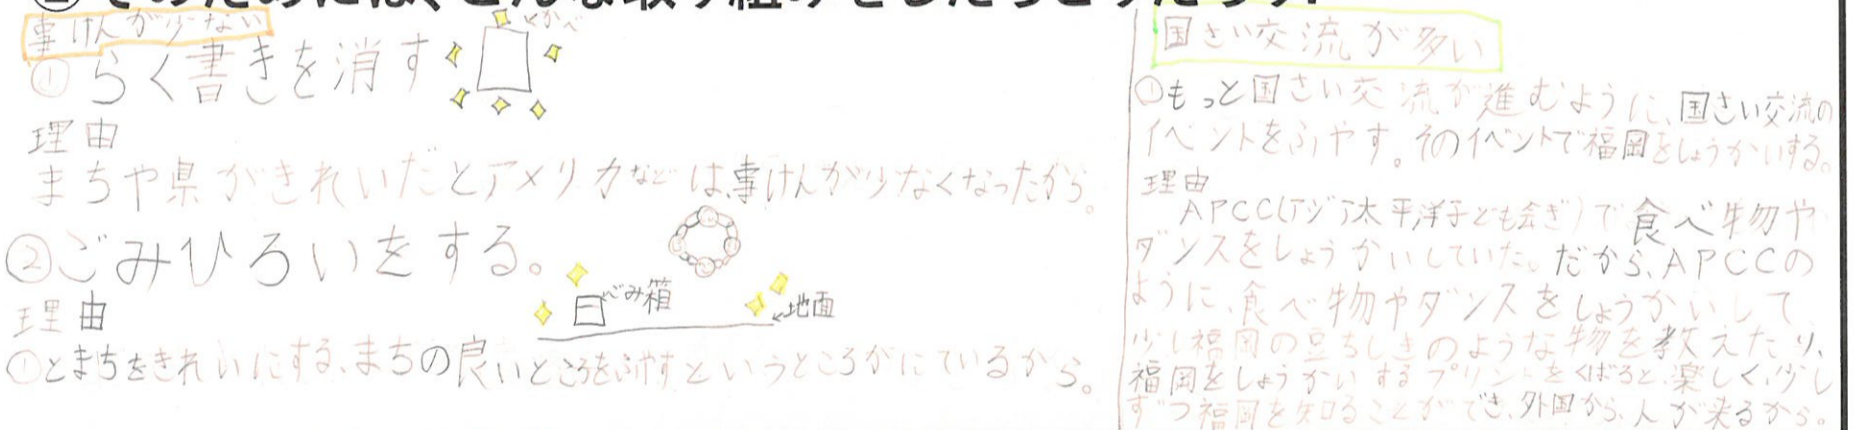 ②そのためには、どんな取り組みをしたらよいだろう？
事けんが少ない
←かべ
①らく書きを消す
理由
まちや県がきれいだとアメリカなどは、事けんが少なくなったから。
②ごみひろいをする。
ごみ箱
←地面
理由
①とまちをきれいにする、まちの良いところをふやすというところがにているから。
国さい交流が多い
①もっと国さい交流が進むように、国さい交流の
イベントをふやす。そのイベントで福岡をしょうかいする。
理由
APCC(アジア太平洋子ども会ぎ)で食べ物や
ダンスをしょうかいしていた。だから、APCCの
ように、食べ物やダンスをしょうかいして
少し福岡の立ちしきのような物を教えたり、
福岡をしょうかいするプリントをくばると、楽しく、少し
ずつ福岡を知ることができ、外国から、人が来るから。